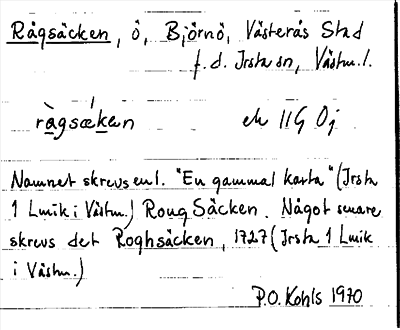 Rågsäcken, ö, Björnö, Västerås Stad
f.d. Irsta sn, Västm.l.
rågsækan ek 11G 0j
Namnet skrevs enl. "En gammal karta" (Irsta
1 Lmik i Västm.) RougSäcken. Något senare
skrevs det Roghsäcken, 1727 (Irsta 1 Lmik
i Västm.)
P.O. Kohls 1970